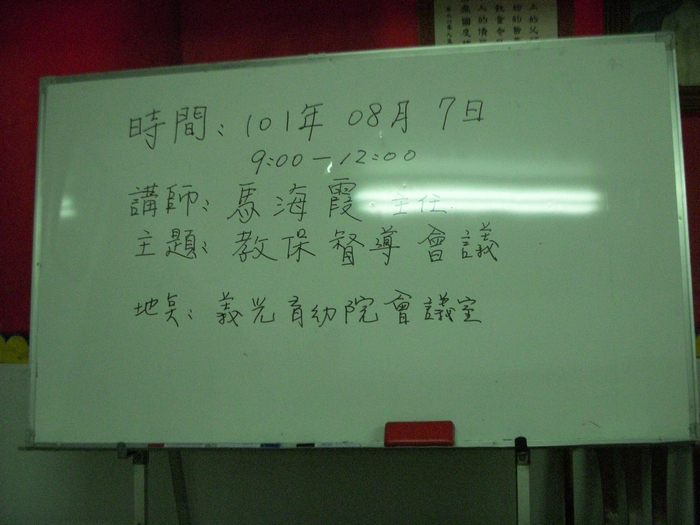 時間：101年 08月 7日
9:00－12:00
講師：馬海霞 主任
主題：教保督導會議
地點：義光育幼院會議室